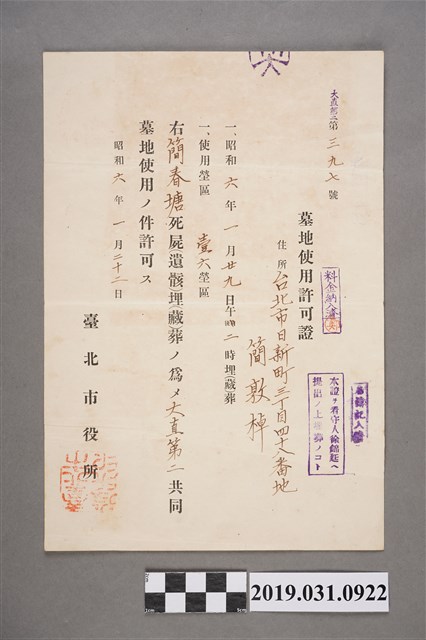 大直第二第三九七號
墓地使用許可證
料金納入濟
住所 台北市日新町三丁目四十八番地
簡敦棹
本證ヲ看守人徐錦廷ヘ
提出ノ上埋葬ノコト
一、昭和六年一月廿九日午前二時埋(藏)葬
一、使用塋區 壹六塋區
右簡春塘死屍(遺骸)埋(藏)葬ノ爲メ大直第二共同
墓地使用ノ件許可ス
昭和六年一月二十二日
臺北市役所
2019.031.0922